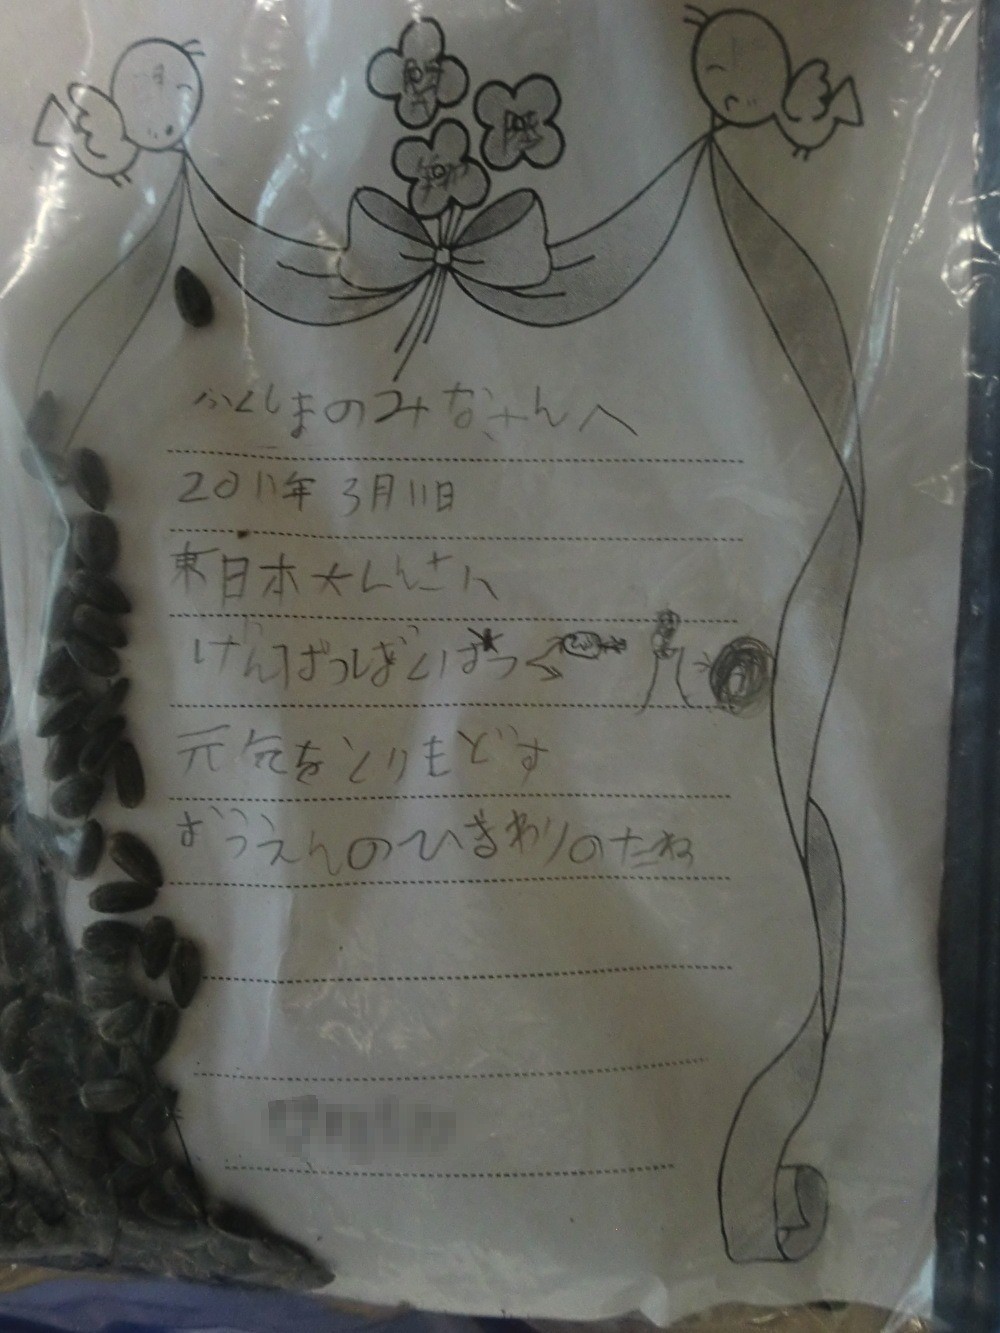 ふくしまのみなさんへ
2011年3月11日
東日本大しんさい
げんぱつばくはつ
元気をとりもどす
おうえんのひまわりのたね